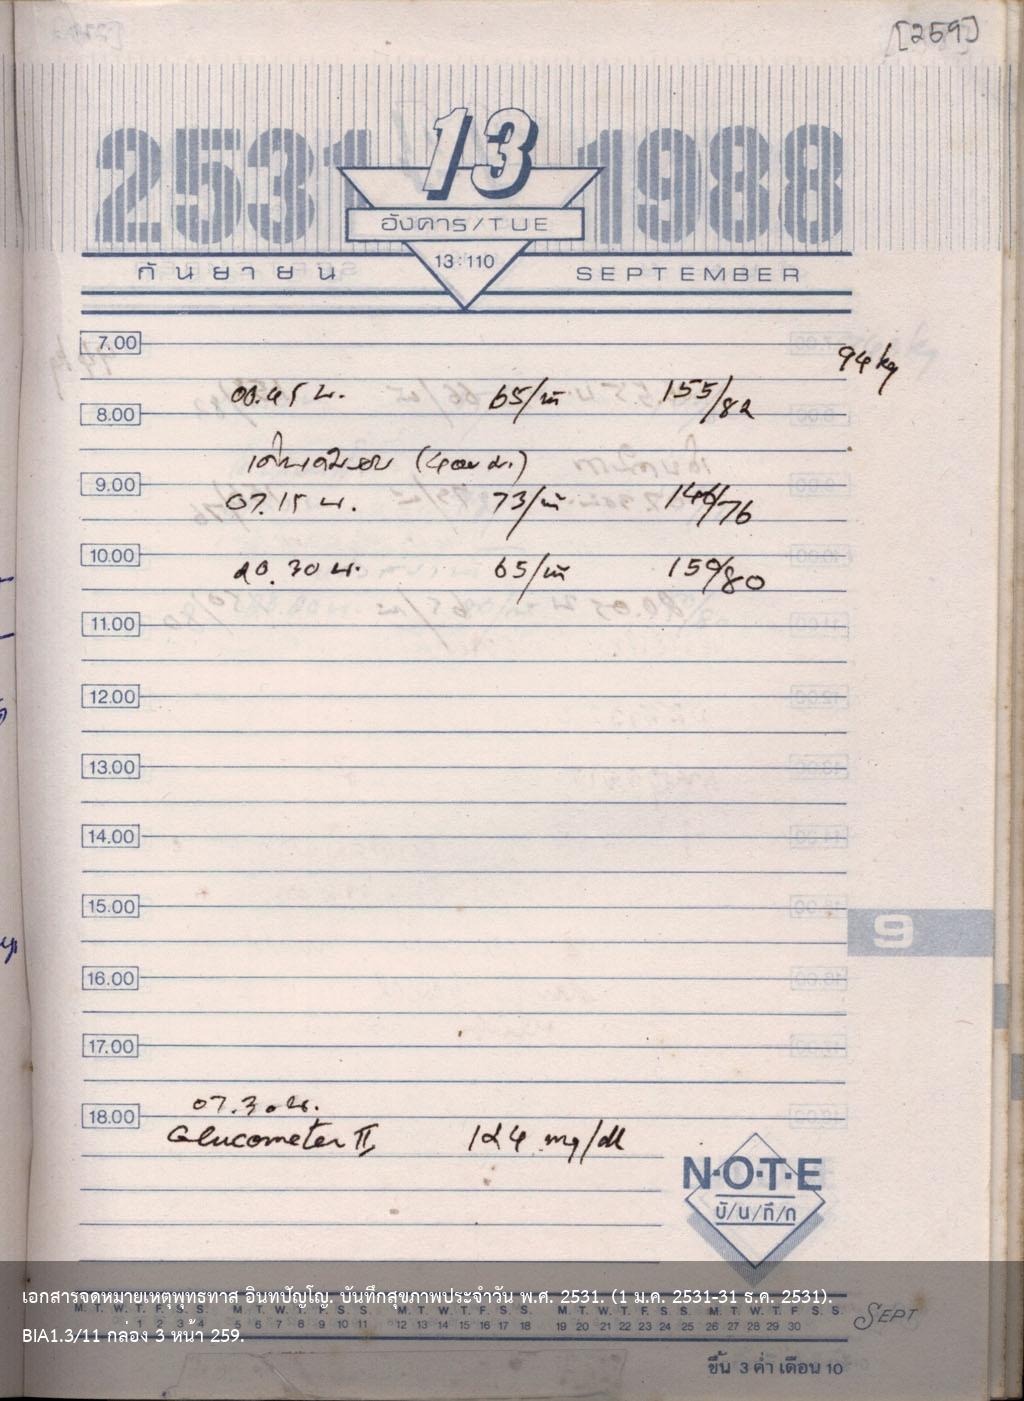 [259]
2531 13 1988
อังคาร/TUE
กันยายน 13:110 SEPTEMBER
7.00
94 kg
65/นาที 155/82
8.00
(400 ม.)
9.00
07.15 น. 73/นาที 146/76
10.00
20.30 น. 65/นาที 159/80
11.00
12.00
13.00
14.00
15.00
9
16.00
17.00
07.30 น.
18.00
Glucometer II 124 mg/dl
N·O·T·E
บั/น/ทึ/ก
เอกสารจดหมายเหตุพุทธทาส อินทปัญโญ. บันทึกสุขภาพประจำวัน พ.ศ. 2531. (1 ม.ค. 2531-31 ธ.ค. 2531).
M. T. W. T. F. S. S. M. T. W. T. F. S. S. M. T. W. T. F. S. S. M. T. W. T. F. S. S. M. T. W. T. F. S. S.
1 2 3 4 5 6 7 8 9 10 11 12 13 14 15 16 17 18 19 20 21 22 23 24 25 26 27 28 29 30
SEPT
BIA1.3/11 กล่อง 3 หน้า 259.
ขึ้น 3 ค่ำ เดือน 10